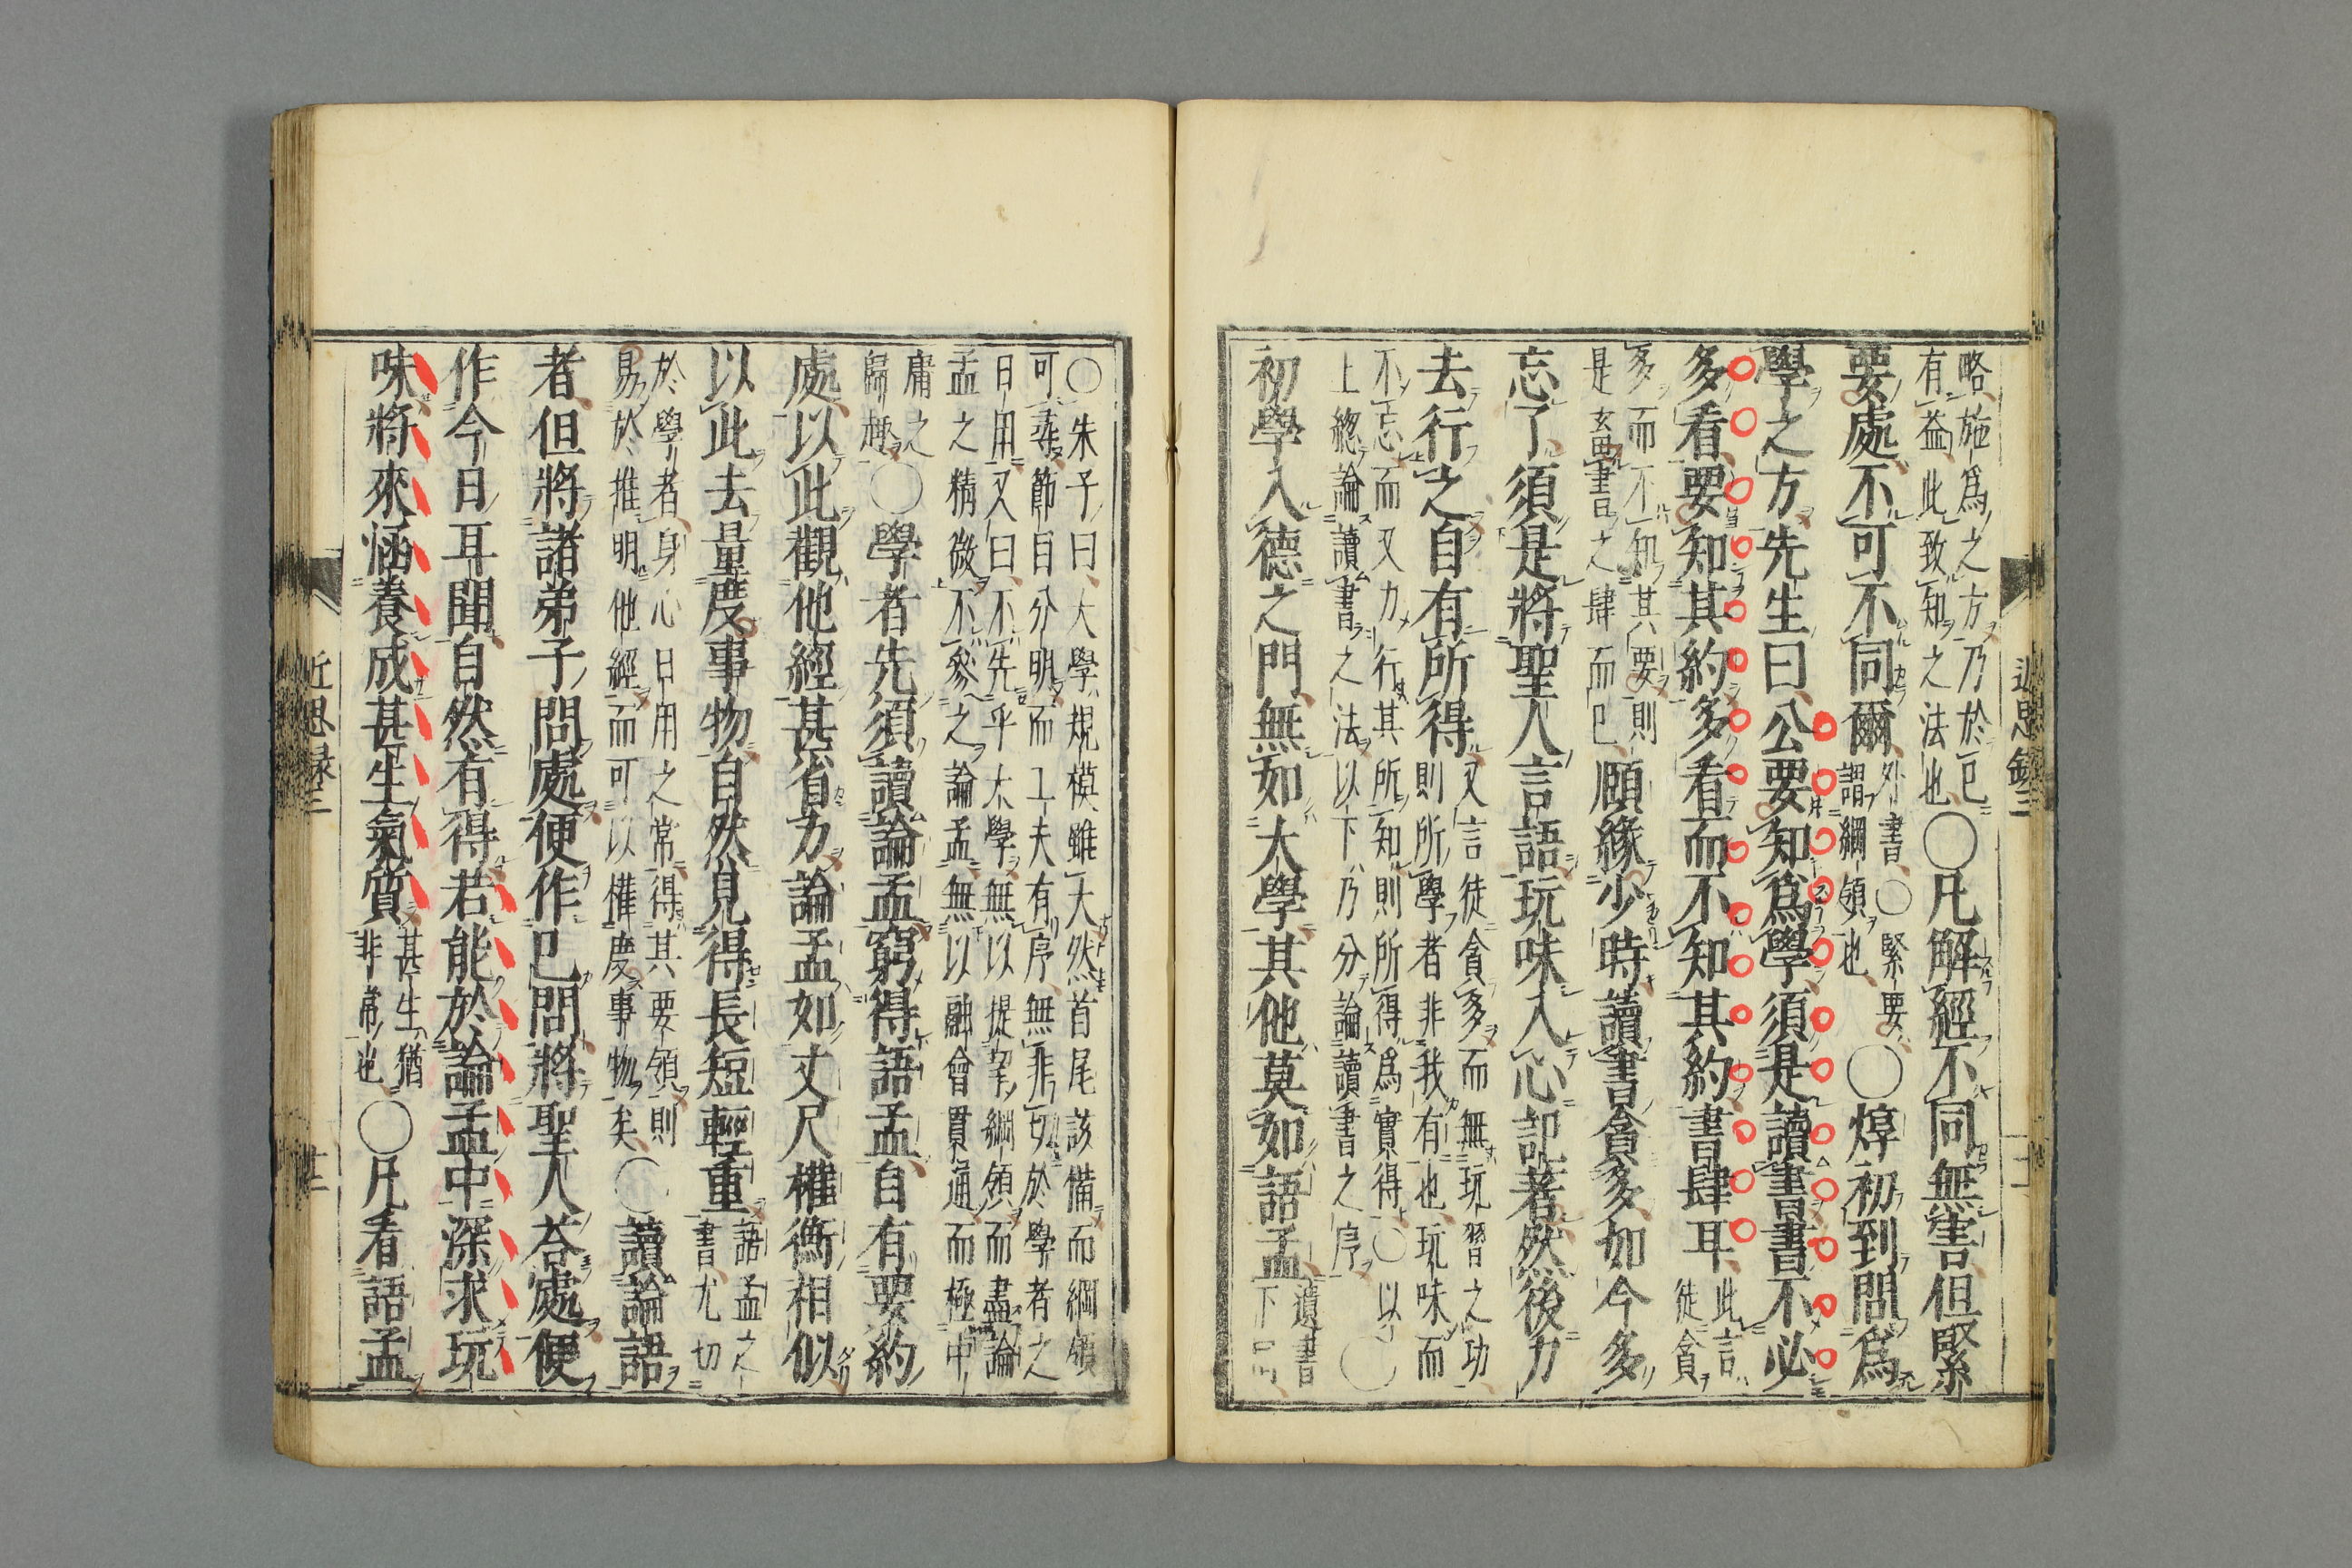 略施爲之方乃於已
有益此致知之法也
○凡解經不同無害但緊
要處不可不同爾
外書○緊要
謂綱領也
○焞初到問爲
學之方先生曰公要知爲學須是讀書書不必
多看要知其約多看而不知其約書肆耳
此言徒貪
多而不知其要則
是畜書之肆而已
頤緣少時讀書貪多如今多
忘了須是將聖人言語玩味入心記著然後力
去行之自有所得
又言徒貪多而無玩習之功
則所學者非我有也玩味而
不忘而又力行其所知則所得爲實得○以
上總論讀書之法以下乃分論讀書之序
○初學入德之門無如大學其他莫如語孟
遺書
下同
○朱子曰大學規模雖大然首尾該備而綱領
可尋節目分明而工夫有序無非切於學者之
日用又曰不先乎大學無以提挈綱領而盡論
孟之精微不參之論孟無以融會貫通而極中
庸之
歸趣
○學者先須讀論孟窮得語孟自有要約
處以此觀他經甚省力論孟如丈尺權衡相似
以此去量度事物自然見得長短輕重
語孟之
書尤切
於學者身心日用之常得其要領則
易於推明他經而可以權度事物矣
○讀論語
者但將諸弟子問處便作已問將聖人荅處便
作今日耳聞自然有得若能於論孟中深求玩
味將來涵養成甚生氣質
甚生猶
非常也
○凡看語孟
近思錄三